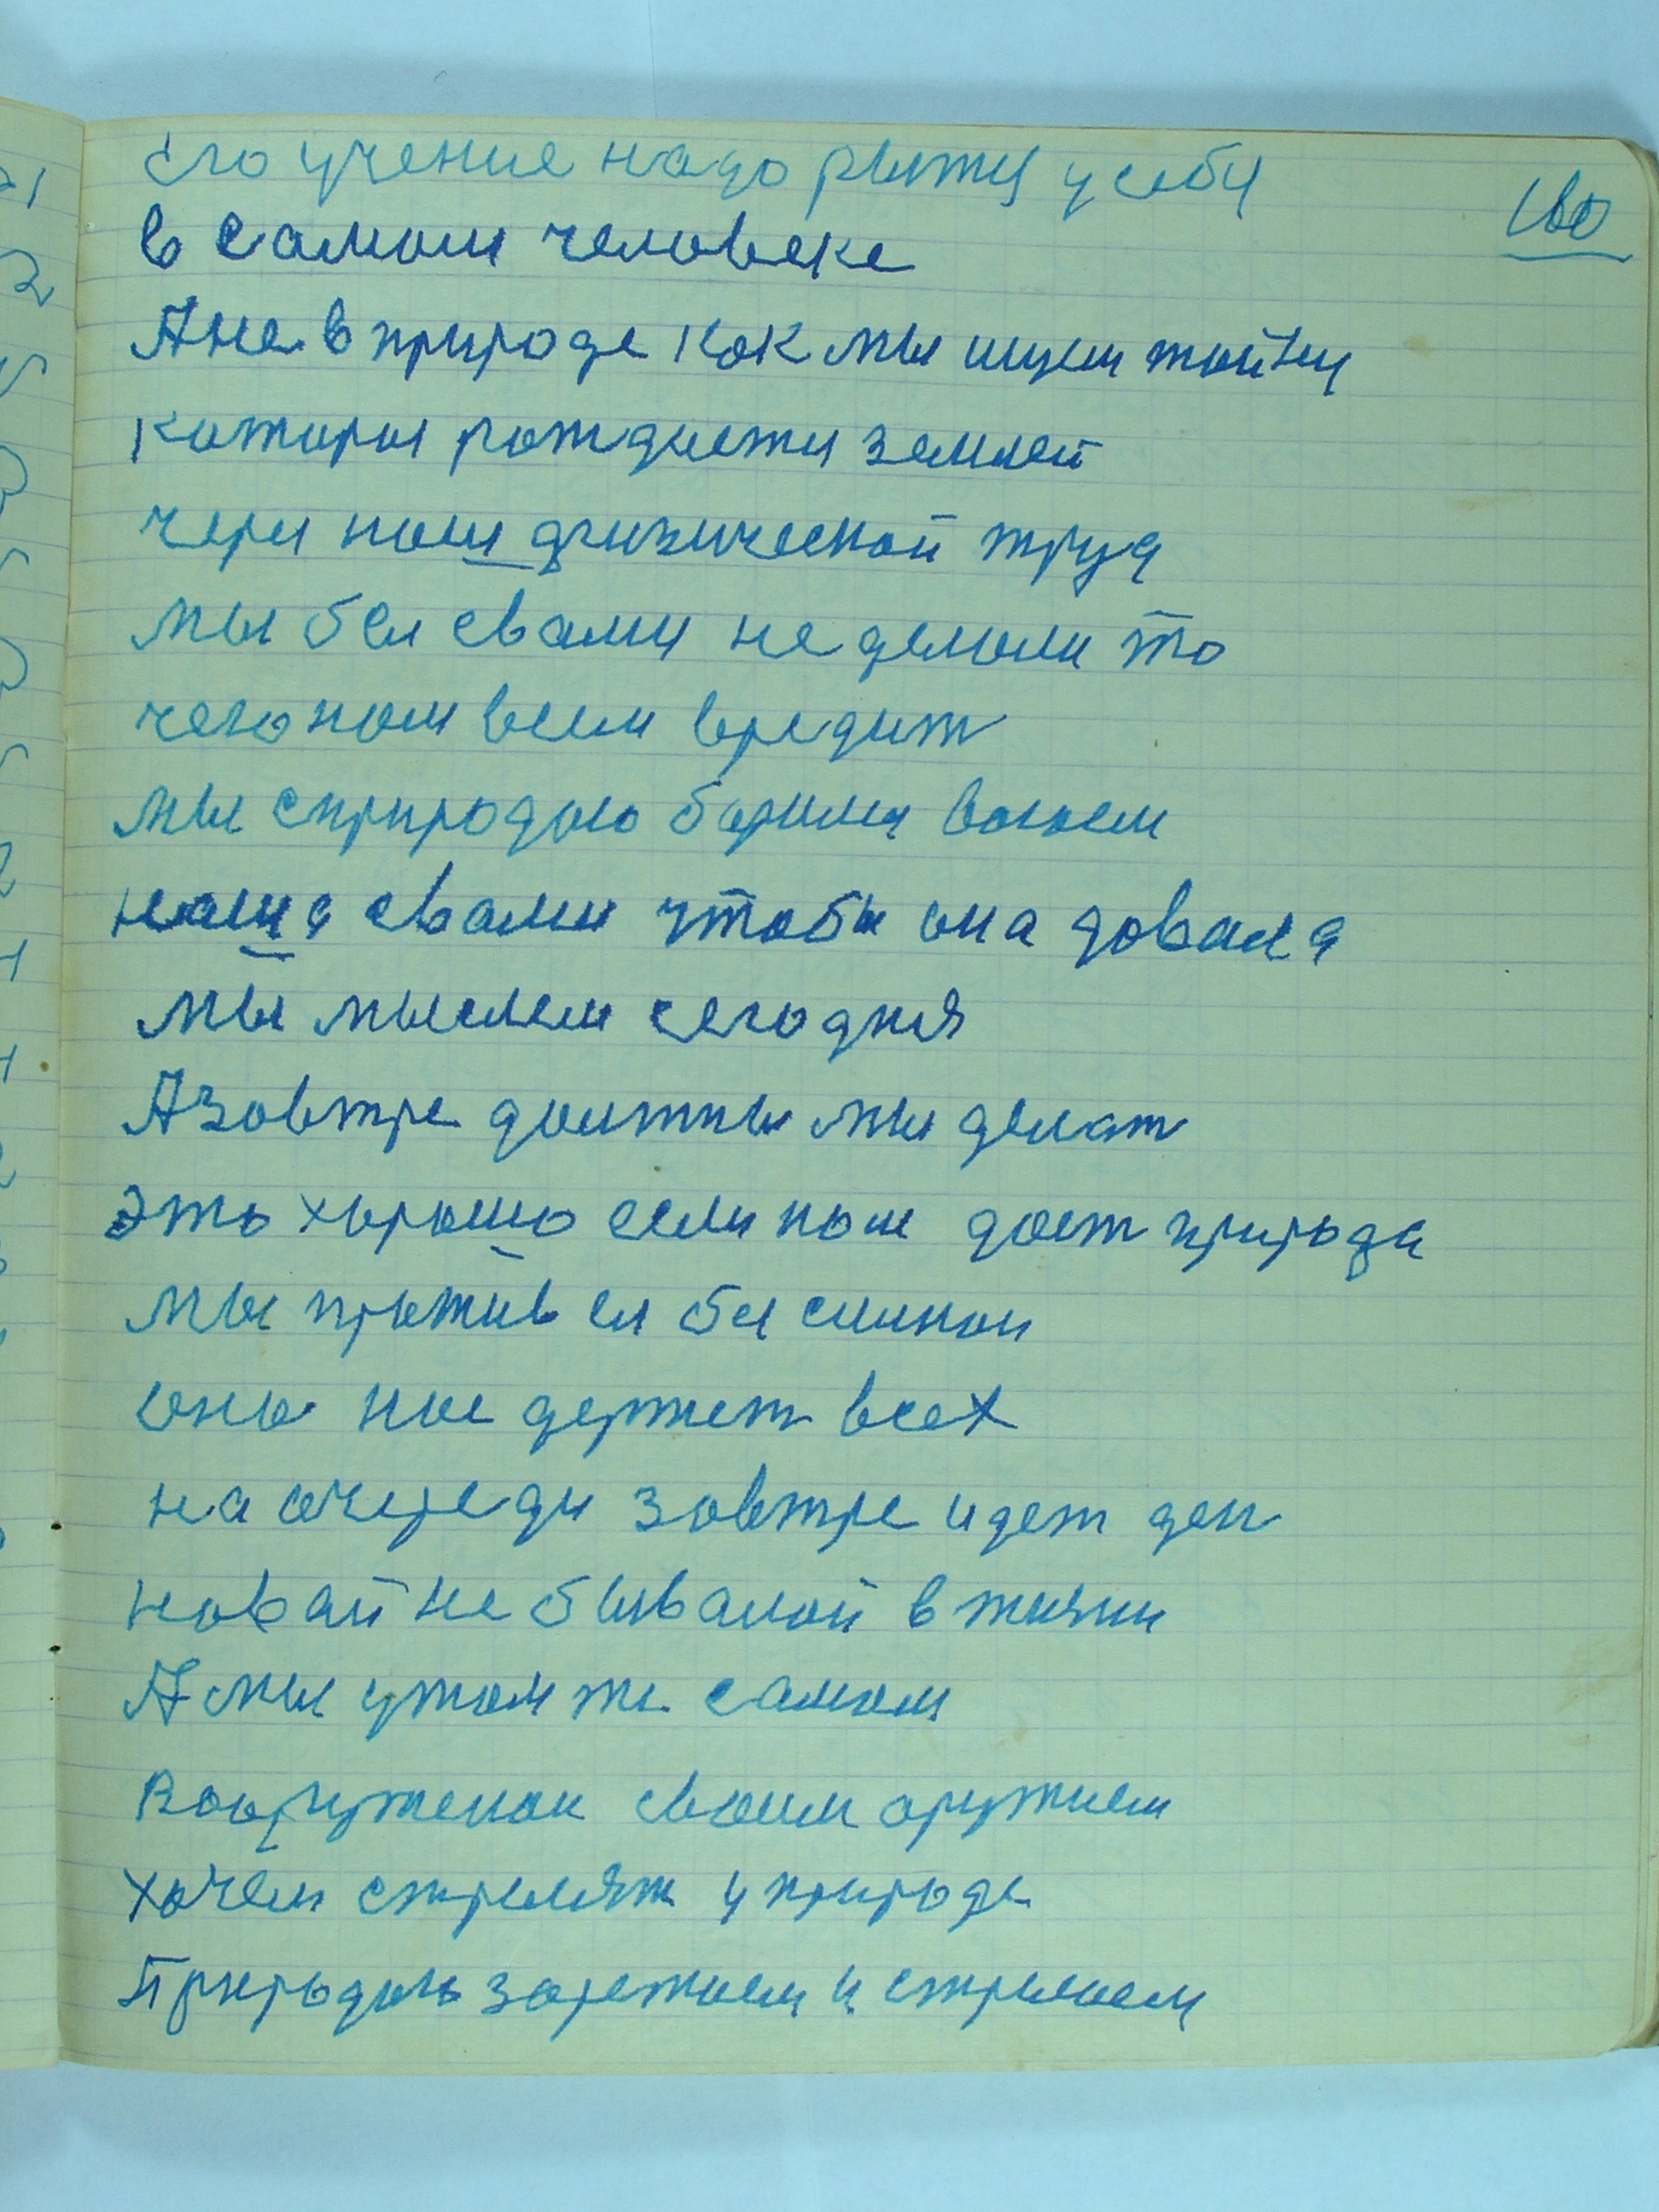 его учение надо рыти у себи
160
в самом человеке
А не в природе как мы ищем тайну
каторы рождаети землей
через наш физической труд
мы бы с вами не делали то
чего нам всем вредит
мы с природою боримся воюем
наша с вами чтобы она довала
мы мыслем сегодня
А Зовтре должны мы делат
это хорошо если нам дает природа
мы против ей бы силнои
она нас держет всех
на очереди зовтре идет ден
новай не бывалой в жизни
А мы у том же самом
Вооруженаи своим оружием
хочем стрелят у природе
Природою зарежаем и стреляем